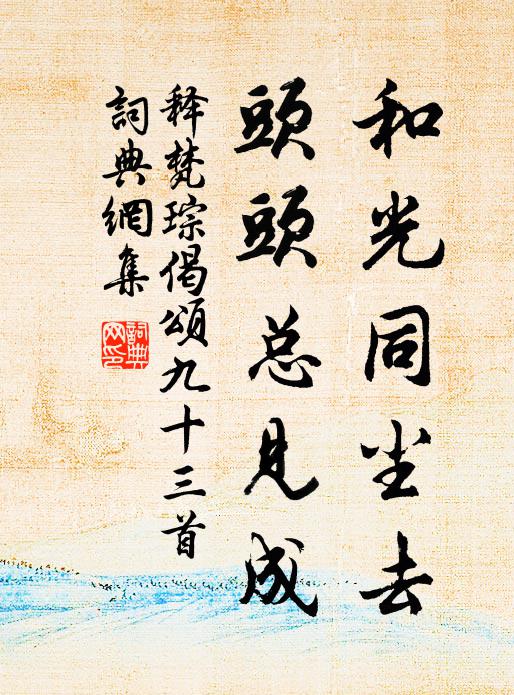 和光同尘去
頭頭总見成
释梵琮偈颂九十三首
詞典網集
詞典
网印